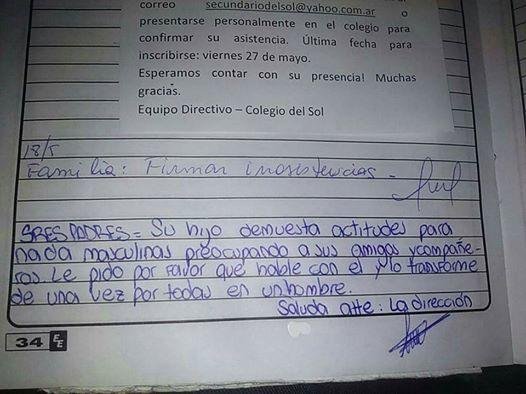 correo secundariodelsol@yahoo.com.ar o
presentarse personalmente en el colegio para
confirmar su asistencia. Última fecha para
inscribirse: viernes 27 de mayo.
Esperamos contar con su presencia! Muchas
gracias.
Equipo Directivo – Colegio del Sol
18/5
Familia: Firmar inasistencias -
SRES PADRES = Su hijo demuesta actitudes para
nada masculinas preocupando a sus amigos y compañe-
ros. Le pido por favor que hable con el y lo transforme
de una vez por todas en un hombre.
Saluda atte: La dirección
34 EE